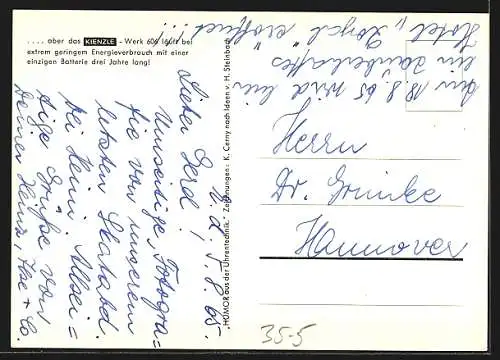 .... aber das KIENZLE - Werk 606 läuft bei
extrem geringem Energieverbrauch mit einer
einzigen Batterie drei Jahre lang!
HUMOR aus der Uhrentechnik. Zeichnungen: K. Cerny nach Ideen v. H. Steinbach
d. 5.8.65.
Lieber Gerd!
Umseitige „Fotogra=
fie von unserem
letzten Skatabd.
bei Heini. Allsei=
tige Grüße von
Deinen Heinz, Ilse & Co.
Am 18.8.65 wird hier
ein zauberhaftes
Hotel eröffnet...
Herrn
Dr. Grimke
Hannover
35-5